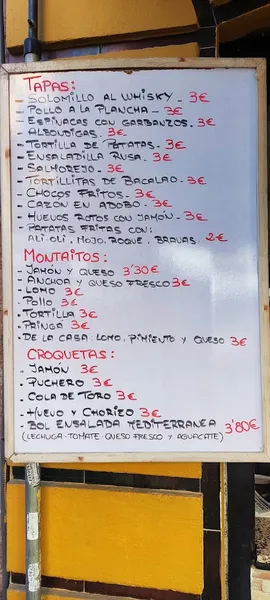 TAPAS:
- SOLOMILLO AL WHISKY - 3€
- POLLO A LA PLANCHA - 3€
- ESPINACAS CON GARBANZOS. 3€
- ALBONDIGAS. 3€
- TORTILLA DE PATATAS. 3€
- ENSALADILLA RUSA. 3€
- SALMOREJO. 3€
- TORTILLITAS DE BACALAO. 3€
- CHOCOS FRITOS. 3€
- CAZÓN EN ADOBO. 3€
- HUEVOS ROTOS CON JAMÓN. 3€
- PATATAS FRITAS CON:
ALI OLI, MOJO, ROQUE, BRAVAS. 2€
MONTAITOS:
- JAMÓN Y QUESO 3'30€
- ANCHOA Y QUESO FRESCO 3€
- LOMO 3€
- POLLO 3€
- TORTILLA 3€
- PRINGÁ 3€
- DE LA CASA: LOMO, PIMIENTO Y QUESO 3€
CROQUETAS:
- JAMÓN 3€
- PUCHERO 3€
- COLA DE TORO 3€
- HUEVO Y CHORIZO 3€
- BOL ENSALADA MEDITERRANEA 3'80€
(LECHUGA-TOMATE-QUESO FRESCO Y AGUACATE)